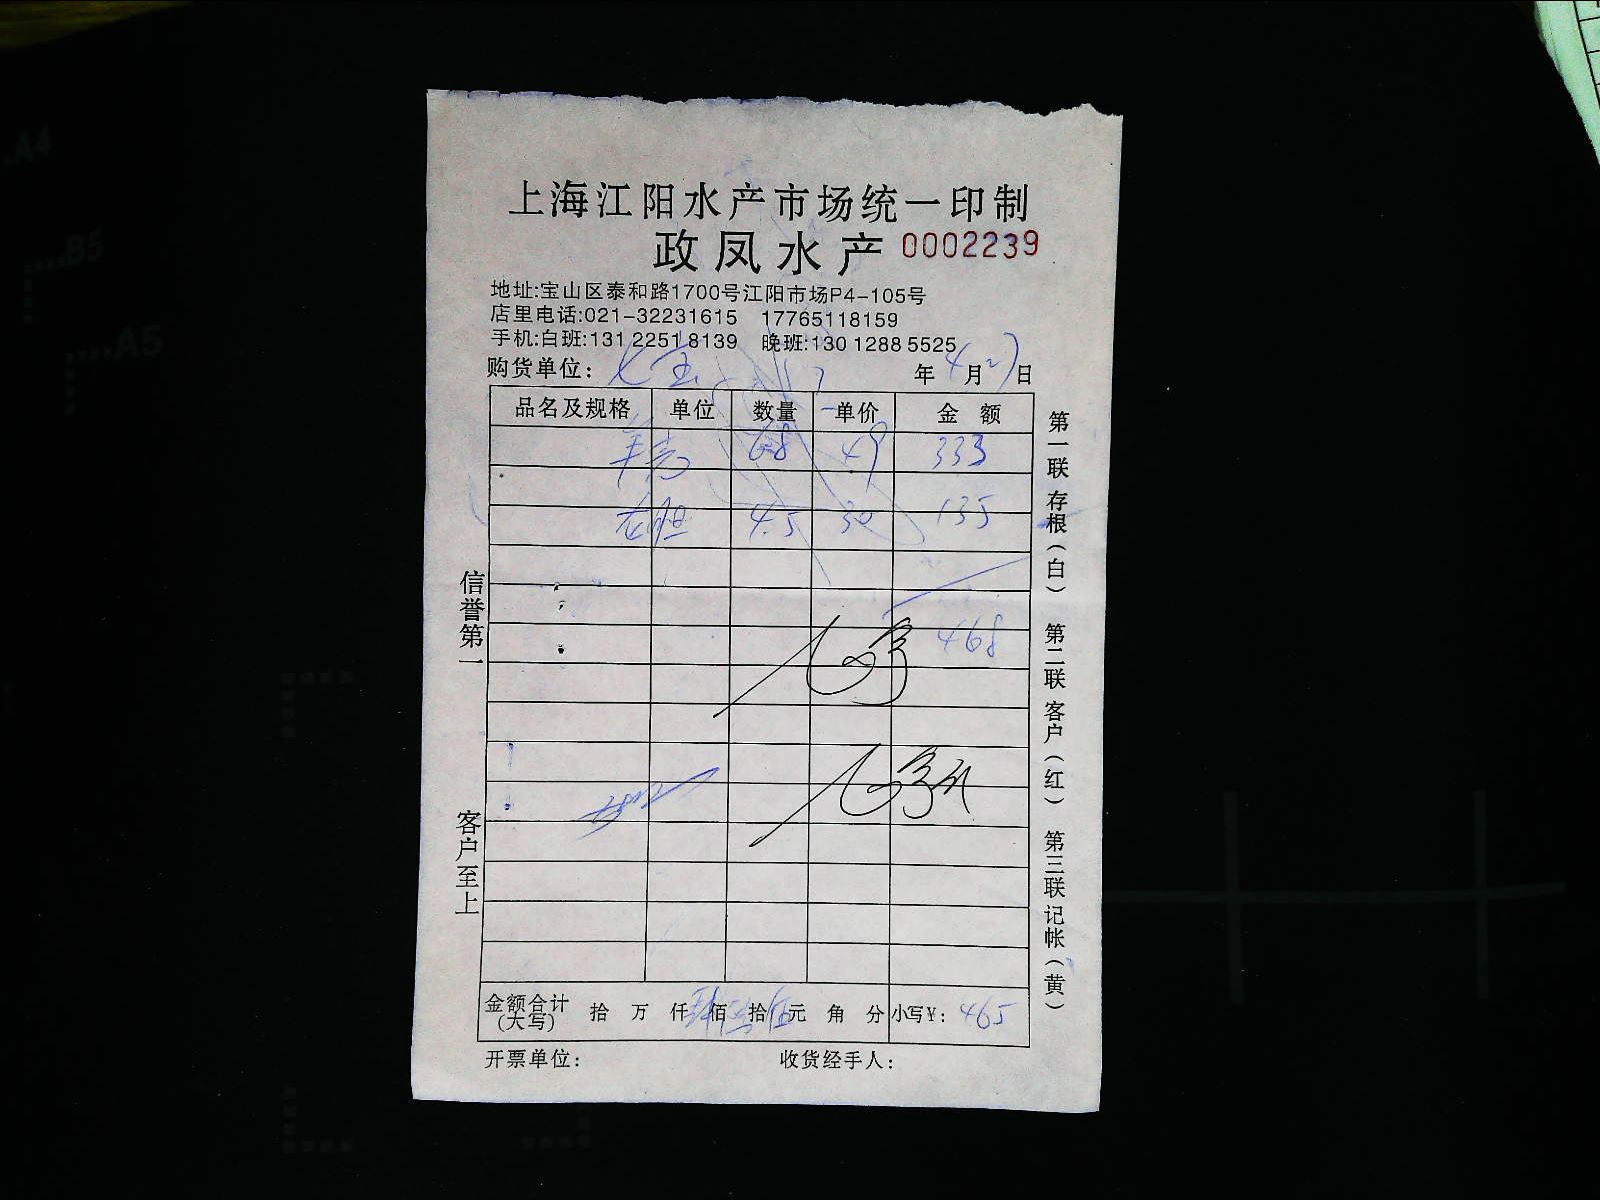 上海江阳水产市场统一印制
政凤水产 0002239
地址:宝山区泰和路1700号江阳市场P4-105号
店里电话:021-32231615 17765118159
手机:白班:131 2251 8139 晚班:130 1288 5525
购货单位: 七宝 年4月27日
品名及规格 单位 数量 单价 金额
6.8 49 333
4.5 30 135
468
金额合计(大写) 拾 万 仟 佰 拾 元 角 分 小写¥: 465
开票单位: 收货经手人:
信誉第一
客户至上
第一联 存根(白) 第二联 客户(红) 第三联 记帐(黄)
A4
B5
A5